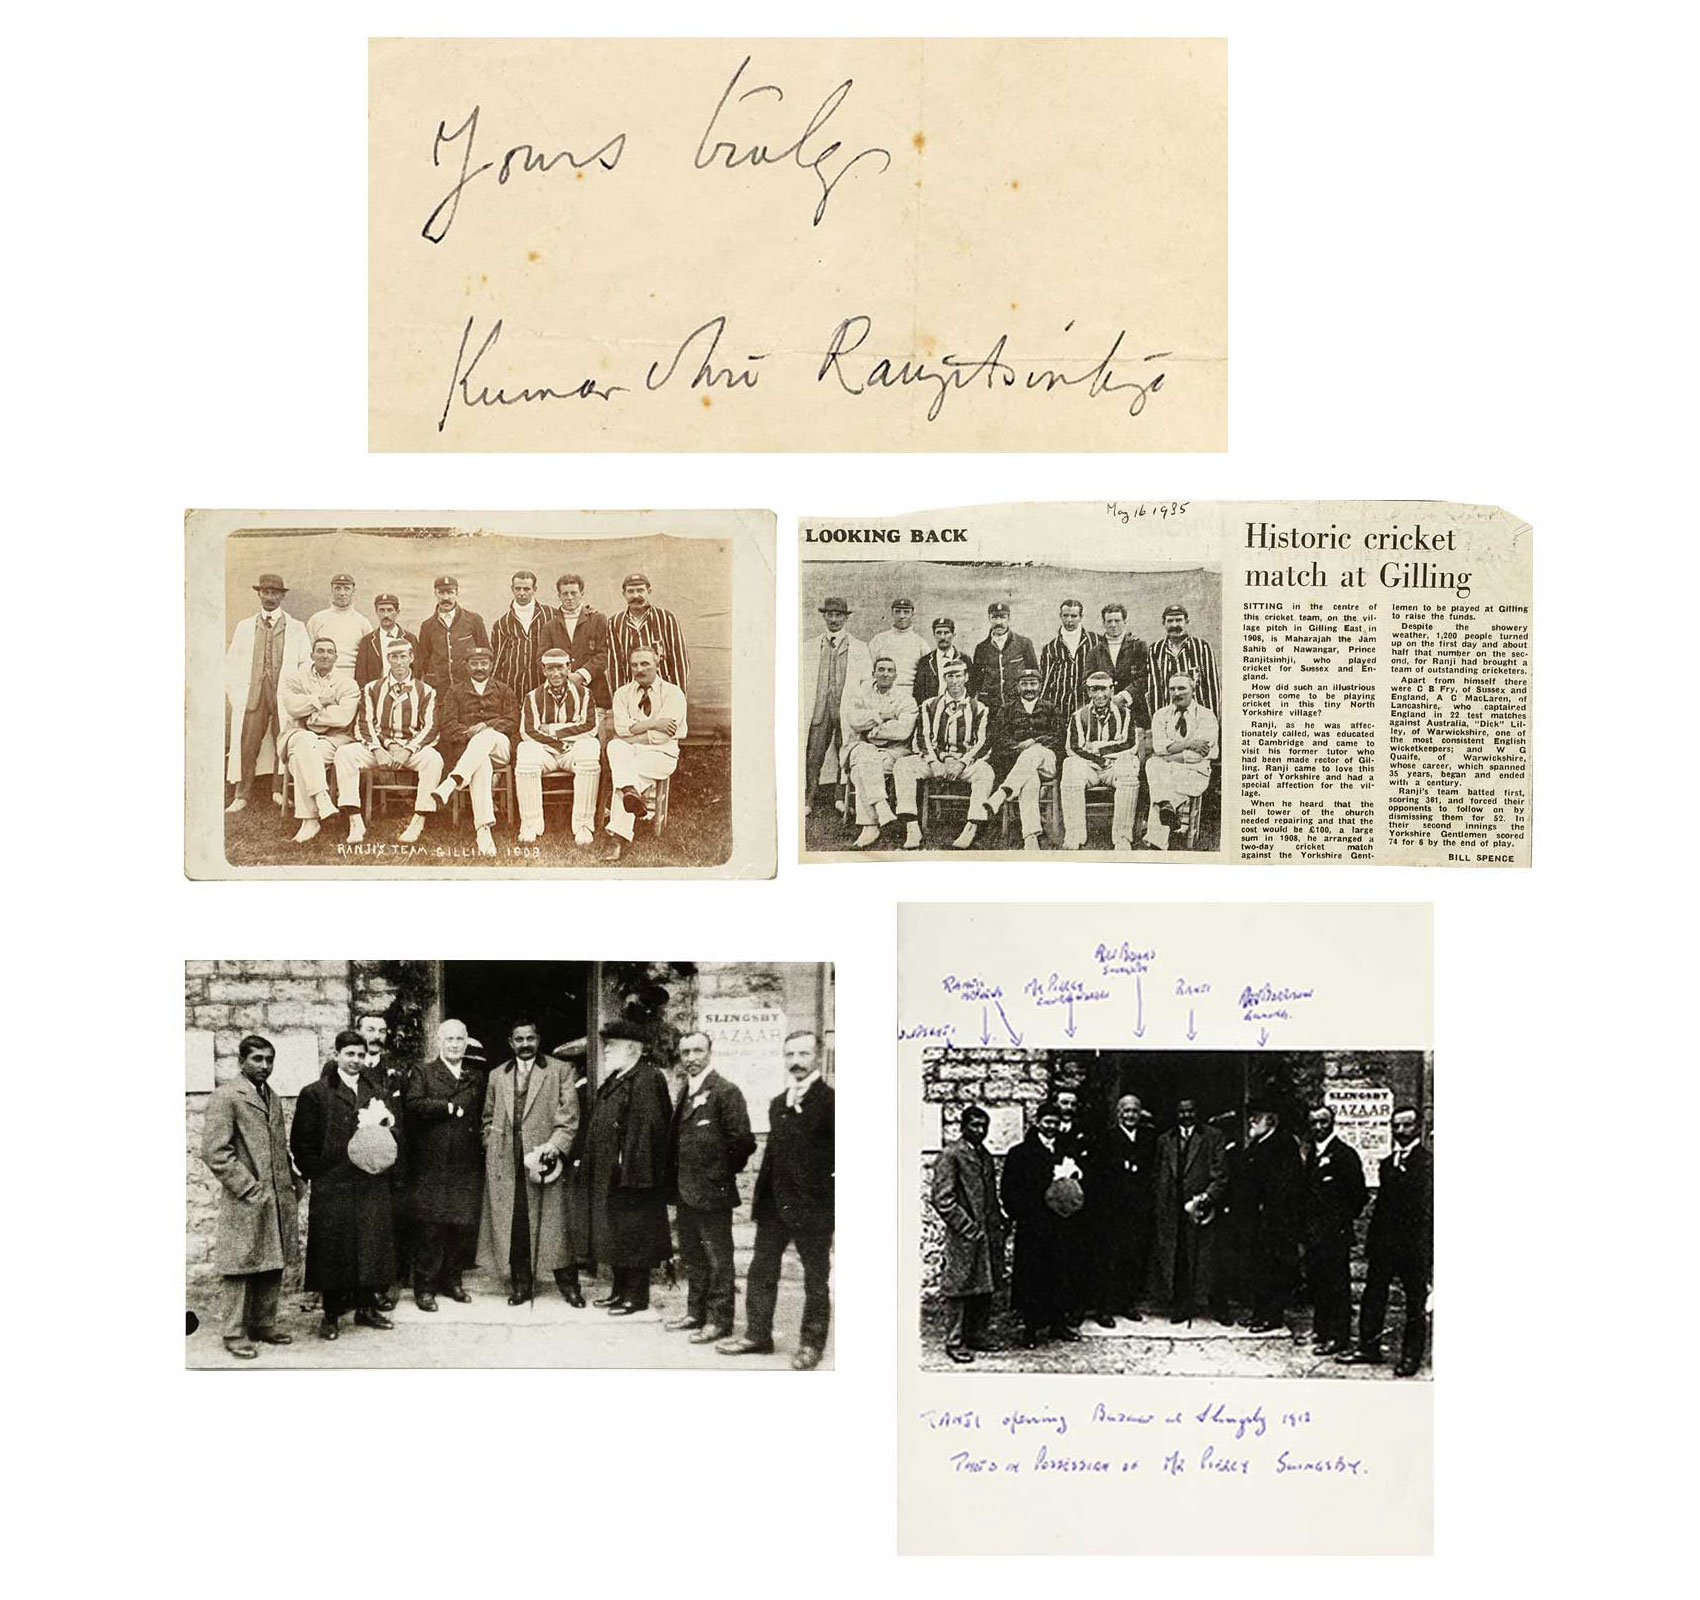 Yours truly
Kumar Shri Ranjitsinhji
RANJI'S TEAM. GILLING 1908.
May 16 1985
LOOKING BACK
Historic cricket
match at Gilling
SITTING in the centre of
this cricket team, on the vil-
lage pitch in Gilling East in
1908, is Maharajah the Jam
Sahib of Nawangar, Prince
Ranjitsinhji, who played
cricket for Sussex and En-
gland.
How did such an illustrious
person come to be playing
cricket in this tiny North
Yorkshire village?
Ranji, as he was affec-
tionately called, was educated
at Cambridge and came to
visit his former tutor who
had been made rector of Gil-
ling. Ranji came to love this
part of Yorkshire and had a
special affection for the vil-
lage.
When he heard that the
bell tower of the church
needed repairing and that the
cost would be £100, a large
sum in 1908, he arranged a
two-day cricket match
against the Yorkshire Gent-
lemen to be played at Gilling
to raise the funds.
Despite the showery
weather, 1,200 people turned
up on the first day and about
half that number on the sec-
ond, for Ranji had brought a
team of outstanding cricketers.
Apart from himself there
were C B Fry, of Sussex and
England, A C MacLaren, of
Lancashire, who captained
England in 22 test matches
against Australia, "Dick" Lil-
ley, of Warwickshire, one of
the most consistent English
wicketkeepers; and W G
Quaife, of Warwickshire,
whose career, which spanned
35 years, began and ended
with a century.
Ranji's team batted first,
scoring 381, and forced their
opponents to follow on by
dismissing them for 52. In
their second innings the
Yorkshire Gentlemen scored
74 for 6 by the end of play.
BILL SPENCE
SLINGSBY
BAZAAR
Rev
Slingsby
Ranjis
Mr Piercy
Ranji
SLINGSBY
BAZAAR
RANJI opening Bazaar at Slingsby 1912
Photo in Possession of Mr Piercy Slingsby.